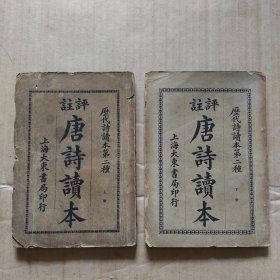 評註
歷代詩讀本第二種
唐詩讀本
上冊
上海大東書局印行
評註
歷代詩讀本第二種
唐詩讀本
下冊
上海大東書局印行